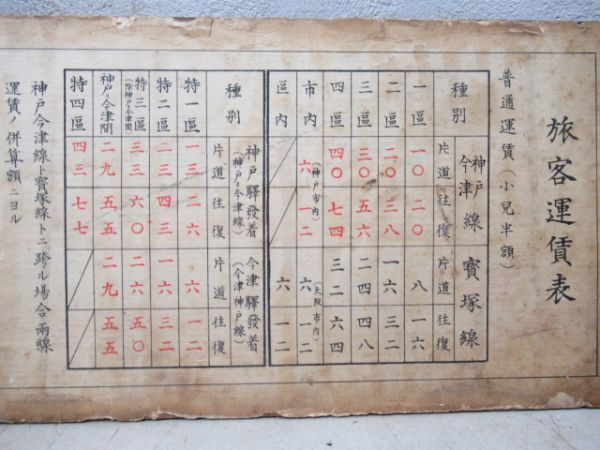 旅客運賃表
普通運賃(小兒半額)
種別 神戸線 今津線 寶塚線
片道 往復 片道 往復
一區 一〇 二〇 八 一六
二區 二〇 三八 一六 三二
三區 三〇 五六 二四 四八
四區 四〇 七四 三二 六四
市内 (神戸市内) 六 一二 (大阪市内) 六 一二
區内 六 一二
種別 神戸驛發着 (神戸ヨリ今津線) 今津驛發着 (今津ヨリ神戸線)
片道 往復 片道 往復
特一區 一三 二六 六 一二
特二區 二三 四三 一六 三二
特三區 (除神戸ヨリ今津間) 三三 六〇 二六 五〇
神戸ヨリ今津間 二九 五五 二九 五五
特四區 四三 七七
神戸今津線ト寶塚線トニ跨ル場合兩線
運賃ノ併算額ニヨル